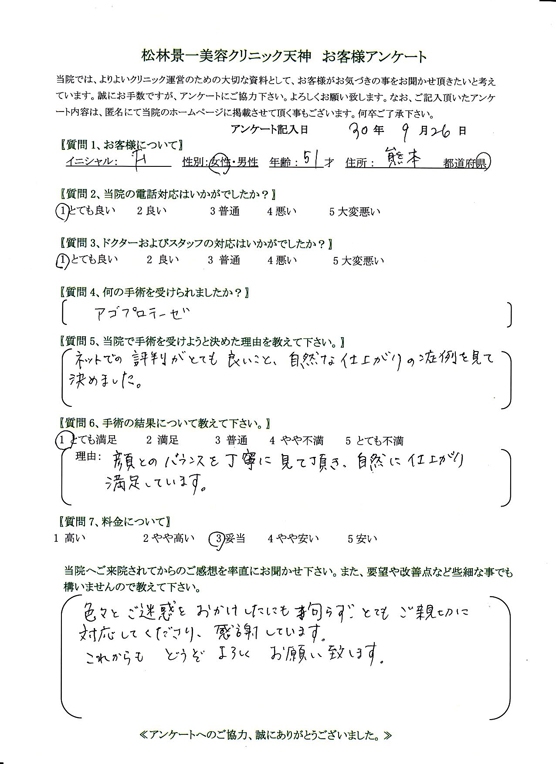 松林景一美容クリニック天神 お客様アンケート
当院では、よりよいクリニック運営のための大切な資料として、お客様がお気づきの事をお聞かせ頂きたいと考え
ています。誠にお手数ですが、アンケートにご協力下さい。よろしくお願い致します。なお、ご記入頂いたアンケ
ート内容は、匿名にて当院のホームページに掲載させて頂く事もございます。何卒ご了承下さい。
アンケート記入日 30年 9月26日
〖質問1、お客様について〗
イニシャル: 性別:女性・男性 年齢:51才 住所:熊本 都道府県
〖質問2、当院の電話対応はいかがでしたか?〗
1とても良い 2良い 3普通 4悪い 5大変悪い
〖質問3、ドクターおよびスタッフの対応はいかがでしたか?〗
1とても良い 2良い 3普通 4悪い 5大変悪い
〖質問4、何の手術を受けられましたか?〗
アゴプロテーゼ
〖質問5、当院で手術を受けようと決めた理由を教えて下さい。〗
ネットでの評判がとても良いこと、自然な仕上がりの症例を見て
決めました。
〖質問6、手術の結果について教えて下さい。〗
1とても満足 2満足 3普通 4やや不満 5とても不満
理由: 顔とのバランスを丁寧に見て頂き、自然に仕上がり
満足しています。
〖質問7、料金について〗
1高い 2やや高い 3妥当 4やや安い 5安い
当院へご来院されてからのご感想を率直にお聞かせ下さい。また、要望や改善点など些細な事でも
構いませんので教えて下さい。
色々とご迷惑をおかけしたにも拘らず、とてもご親切に
対応してくださり、感謝しています。
これからも どうぞ よろしく お願い致します。
≪アンケートへのご協力、誠にありがとうございました。≫